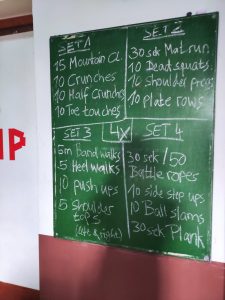 SET 1
15 Mountain Cl.
10 Crunches
10 Half Crunches
10 Toe touches
SET 2
30 sek Mat run
10 Dead squats
10 Shoulder press
10 plate rows
4X
SET 3
5m Band walks
5 Heel walks
10 push ups
5 Shoulder
taps
(left & right)
SET 4
30 sek/50
Battle ropes
10 side step ups
10 Ball slams
30 sek Plank
IP